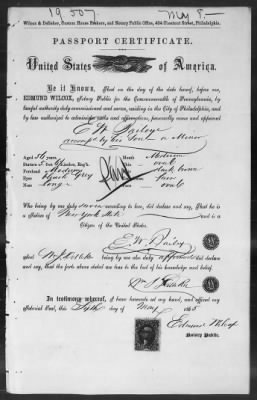 19507
My 8 —
Wilcox & Dolleker, Custom House Brokers, and Notary Public Office, 404 Chestnut Street, Philadelphia.
PASSPORT CERTIFICATE.
United States of America.
Be it Known, That on the day of the date hereof, before me,
EDMUND WILCOX, Notary Public for the Commonwealth of Pennsylvania, by
lawful authority duly commissioned and sworn, residing in the City of Philadelphia, and
by law authorized to administer oaths and affirmations, personally came and appeared
E W
a Minor
Aged 36 years
Mouth Medium
Stature 5 feet Inches, Eng'h
Chin oval
Forehead Medium
Hair dark brown
Eyes Grey
Nose Long
Face oval
Who being by me duly sworn according to law, did declare and say, That he is
a Native of New York State and is a
Citizen of the United States.
E. W.
And W. J.
being by me also duly did declare
and say, that the facts above stated are true to the best of his knowledge and belief.
Wm J
In testimony whereof, I have hereunto set my hand, and affixed my
Notarial Seal, this day of May 1865
Edmund Wilcox
Notary Public.